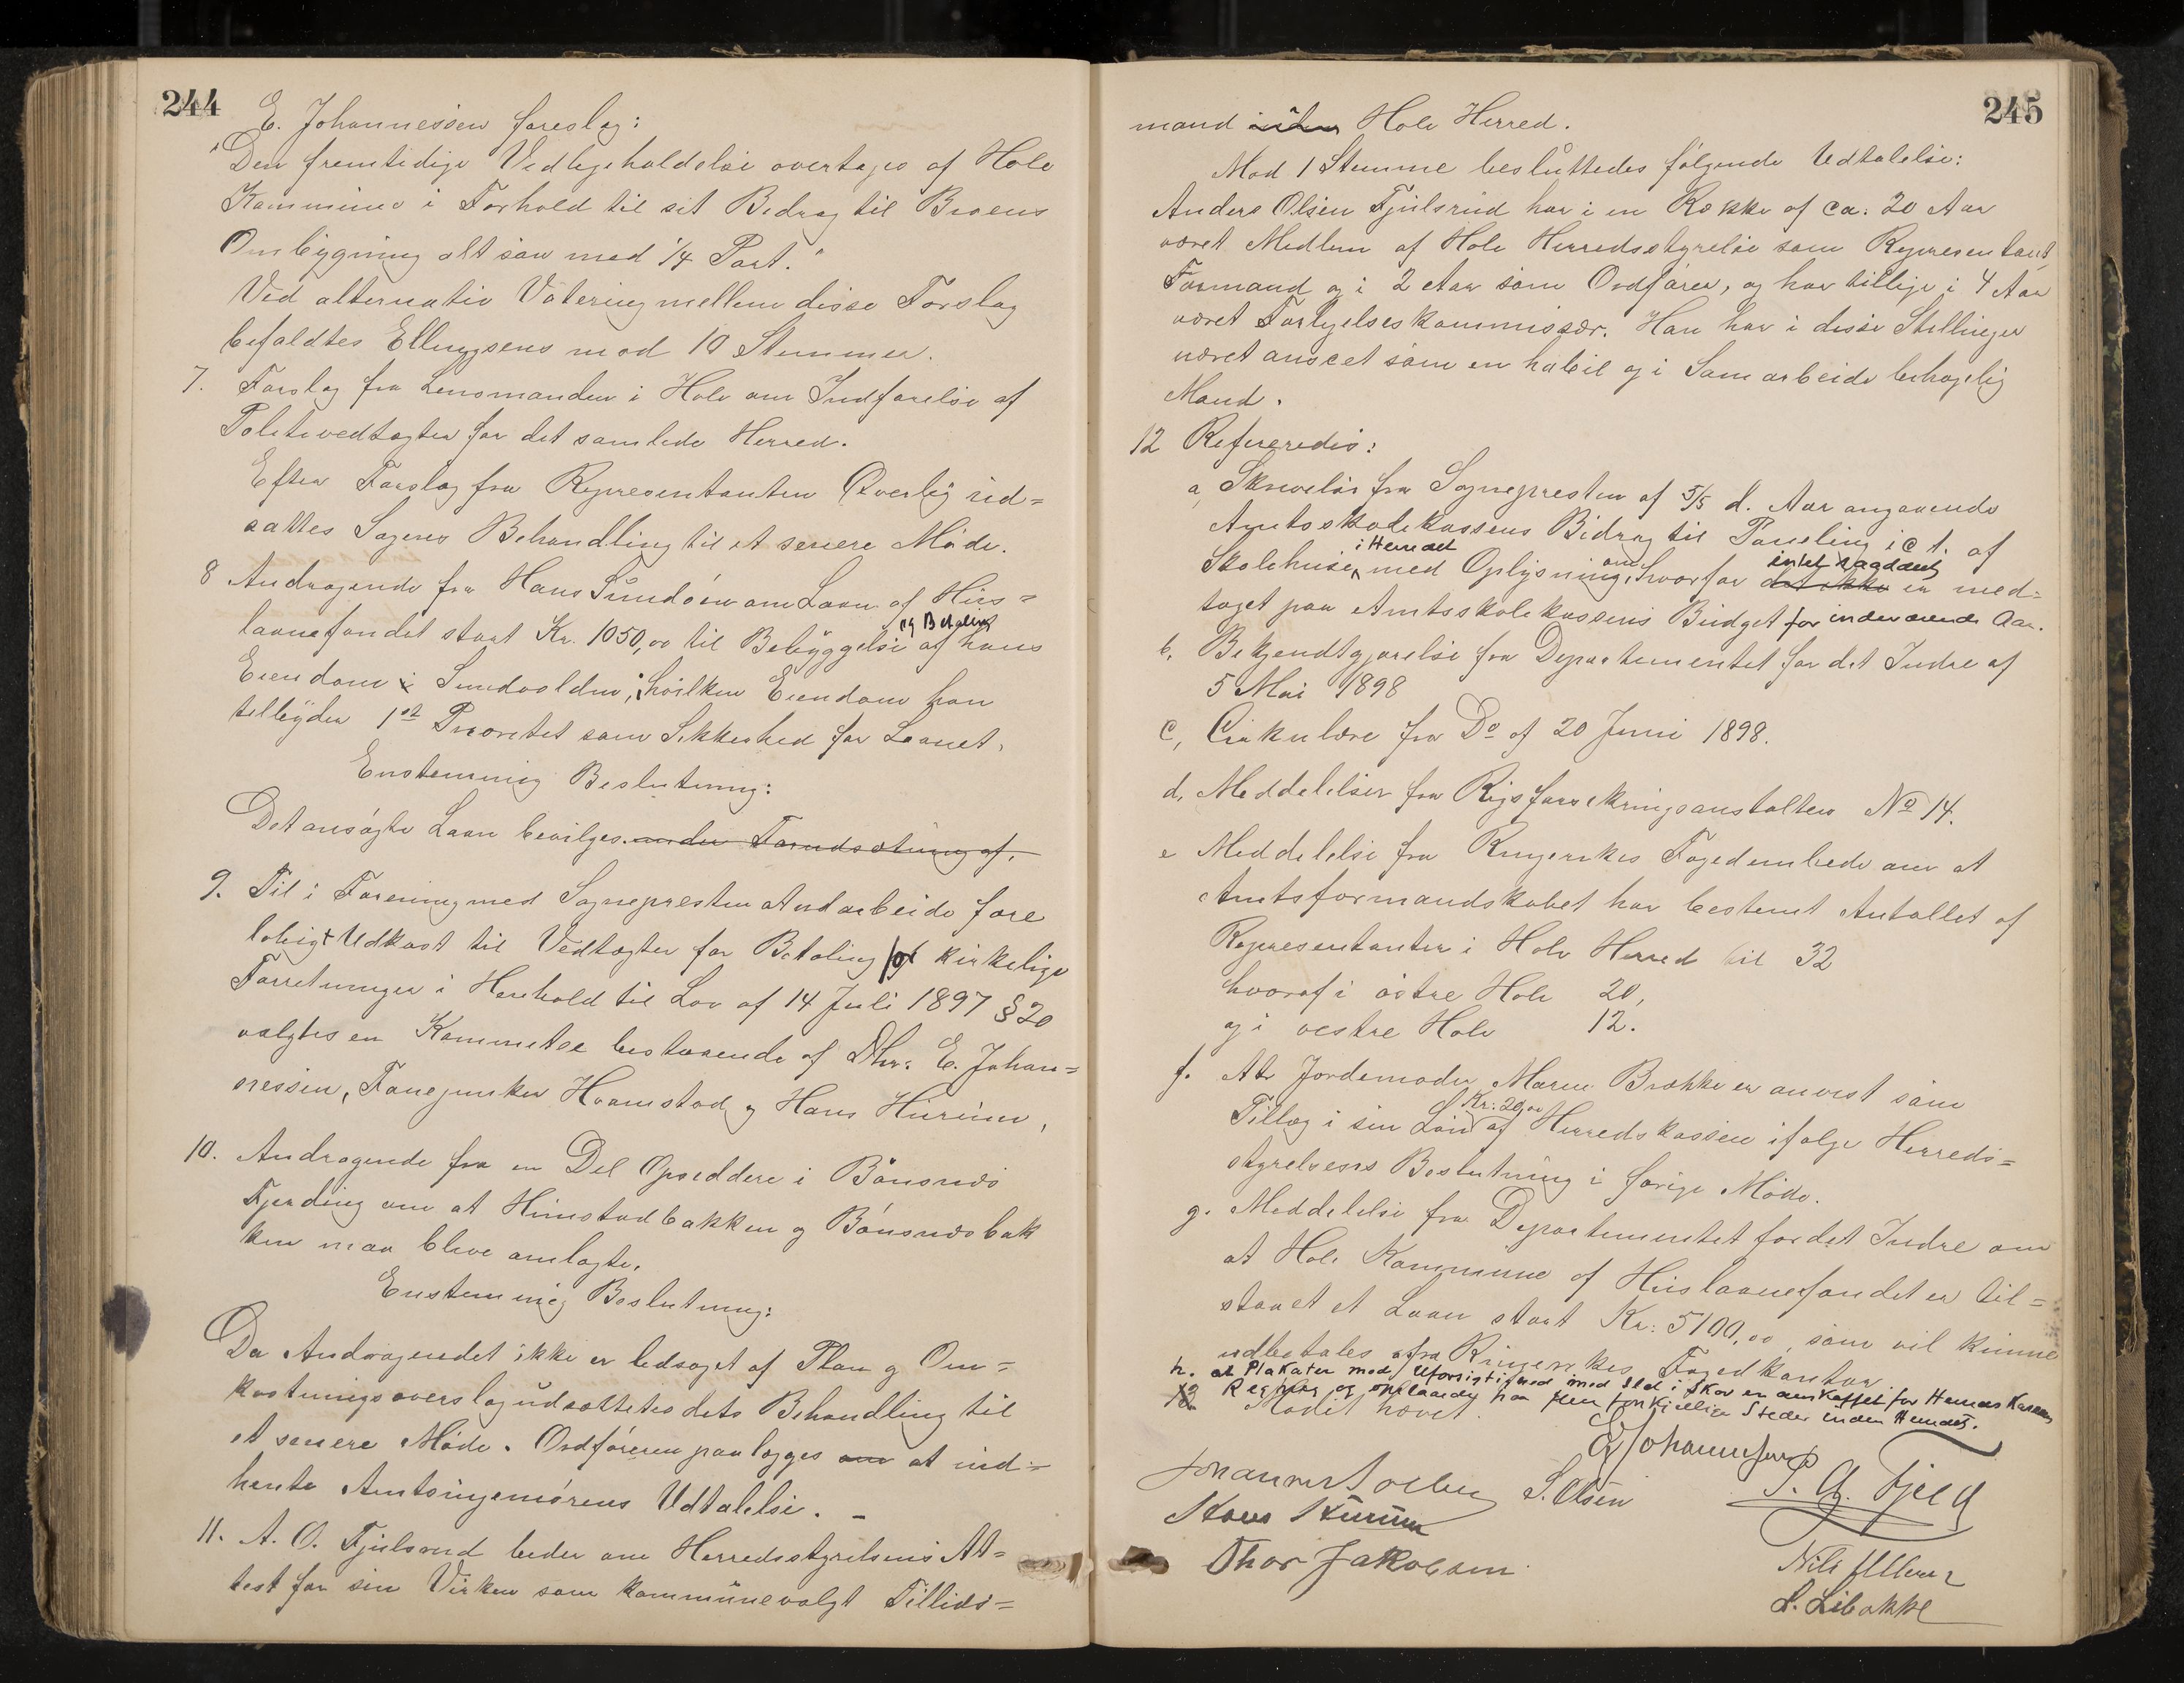 244
E. Johannessen foreslog:
"Den fremtidige Vedligeholdelse overtages af Hole
Kommune i Forhold til sit Bidrag til Broens
Ombygning altsaa med 1/4 Part."
Ved alternativ Votering mellem disse Forslag
bifaldtes Ellingsens mod 10 Stemmer.
7. Forslag fra Lensmanden i Hole om Indførelse af
Politivedtægter for det samlede Herred.
Efter Forslag fra Repræsentanten Øverby ud=
sattes Sagens Behandling til et senere Møde.
8 Andragende fra Hans Sundøen om Laan af Hus=
laanefondet stort Kr. 1050,00 til Bebyggelse og Betaling af hans
Eiendom i Sundvolden, hvilken Eiendom han
tilbyder 1ste Prioritet som Sikkerhed for Laanet.
Enstemmig Beslutning:
Det ansøgte Laan bevilges. under Forudsætning af.
9. Til i Forening med Sognepresten at udarbeide fore
løbigt Udkast til Vedtægter for Betaling for kirkelige
Forretninger i Henhold til Lov af 14 Juli 1897 § 20
valgtes en Kommitee bestaaende af DHrr. E. Johan=
nessen, Fanejunker Hvamstad og Hans Hurum.
10. Andragende fra en Del Opsiddere i Bønsnes
Fjerding om at Himstadbakken og Bønsnesbak
ken maa blive omlagte.
Enstemmig Beslutning:
Da Andragendet ikke er ledsaget af Plan og Om=
kostningsoverslag udsættes dets Behandling til
et senere Møde. Ordføreren paalægges om at ind=
hente Amtsingeniørens Udtalelse. –
11. A. O. Fjulsrud beder om Herredsstyrelsens At=
test for sin Virken som kommunevalgt Tillids=
245
mand i Hole Herred.
Mod 1 Stemme besluttedes følgende Udtalelse:
Anders Olsen Fjulsrud har i en Række af ca. 20 Aar
været Medlem af Hole Herredsstyrelse som Repræsentant,
Formand og i 2 Aar som Ordfører, og har tillige i 4 Aar
været Forligelseskommissær. Han har i disse Stillinger
været anseet som en habil og i Samarbeide behagelig
Mand.
12 Refereredes:
a, Skrivelse fra Sognepresten af 5/5 d. Aar angaaende
Amtsskolekassens Bidrag til Paneling i et af
Skolehuse i Herredet med Oplysning om hvorfor det ikke intet saadant er med=
taget paa Amtsskolekassens Budget for indeværende Aar.
b. Bekjendtgjørelse fra Departementet for det Indre af
5 Mai 1898
c, Cirkulære fra Do af 20 Juni 1898.
d, Meddelelser fra Rigsforsikringsanstalten No 14.
e Meddelelse fra Ringerikes Fogedembede om at
Amtsformandskabet har bestemt Antallet af
Repræsentanter i Hole Herred til 32
hvoraf i østre Hole 20,
og i vestre Hole 12.
f. At Jordemoder Maren Brække er anvist som
Tillæg i sin Løn Kr: 20,00 af Herredskassen ifølge Herreds=
styrelsens Beslutning i forrige Møde.
g. Meddelelse fra Departementet for det Indre om
at Hole Kommune af Huslaanefondet er til=
staaet et Laan stort Kr: 5100,00, som vil kunne
udbetales fra Ringerikes Fogedkontor.
h. at Plakater med Uforsigtighed med Ild i Skov er anskaffet for Herreds Kassens
Regning og opslaaede paa flere forskjellige Steder inden Herredet.
Mødet hævet.
E Johannessen
Johannes Solberg S. Olsen P. G. Fjeld
Hans Hurum
Thor Jakobsen Nils Ullern
L. Libakke